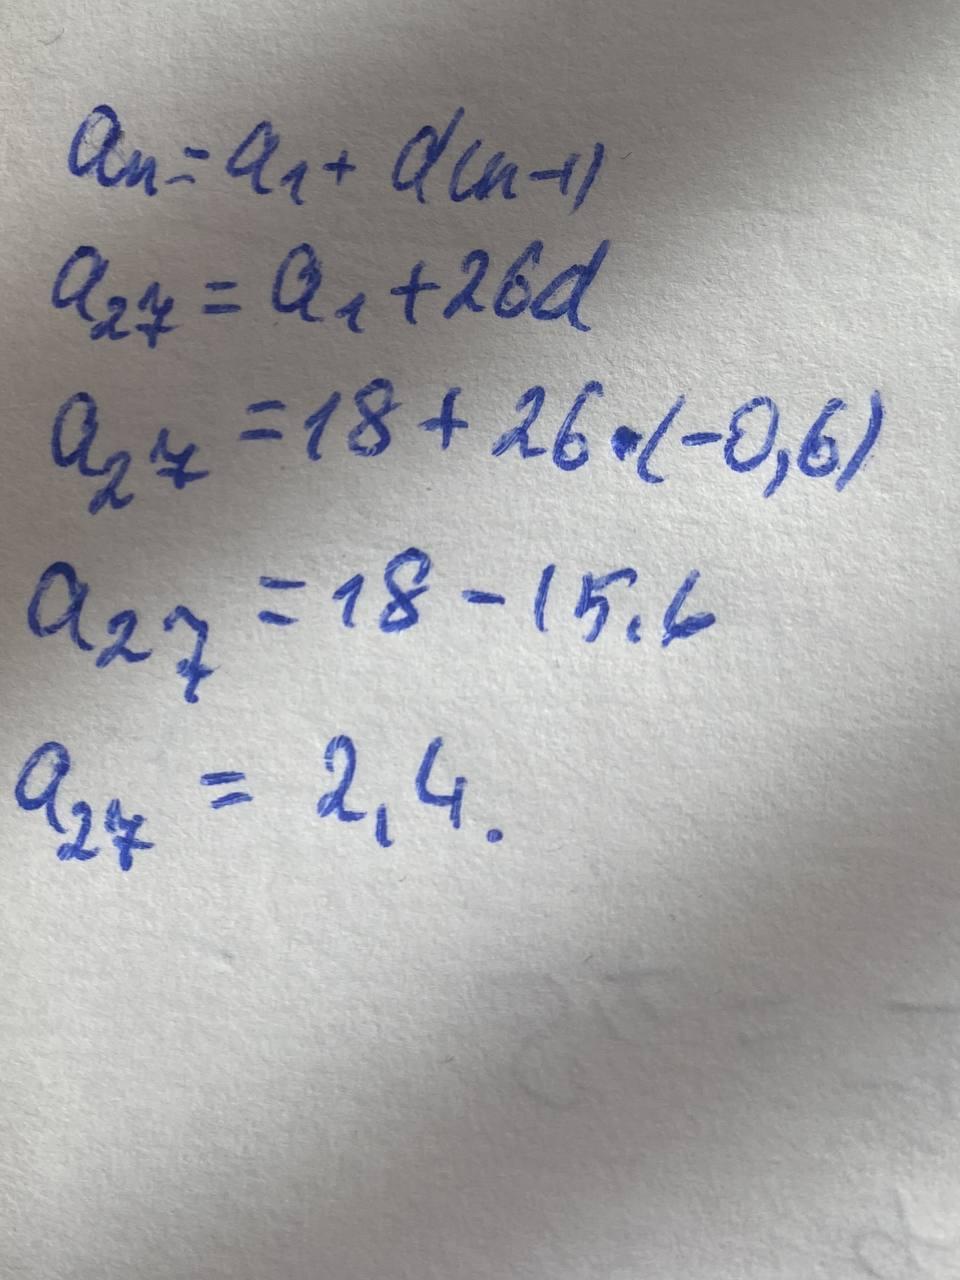 an = a1 + d(n-1)
a27 = a1 + 26d
a27 = 18 + 26•(-0,6)
a27 = 18 - 15.6
a27 = 2,4.